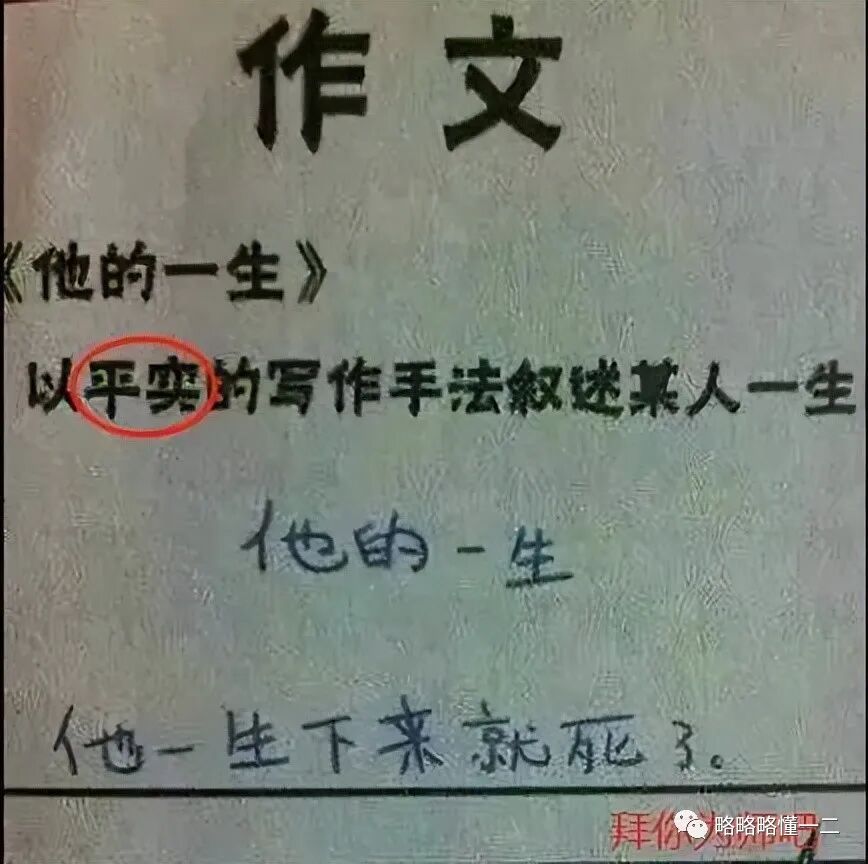 作文
《他的一生》
以平实的写作手法叙述某人一生
他的一生
他一生下来就死了。
拜你为师吧
略略略懂一二